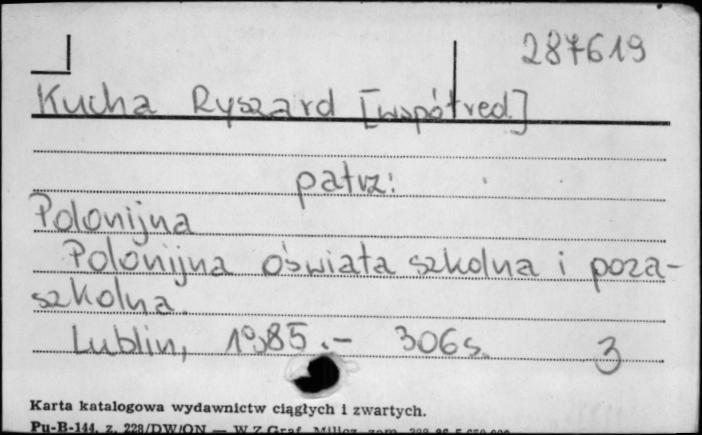 287619
Kucha Ryszard [współred.]
patrz:
Polonijna
Polonijna oświata szkolna i poza-
szkolna.
Lublin, 1985.- 306s. 3
Karta katalogowa wydawnictw ciągłych i zwartych.
Pu-B-144, z. 228/DW/ON — W.Z.Graf. Milicz, zam.